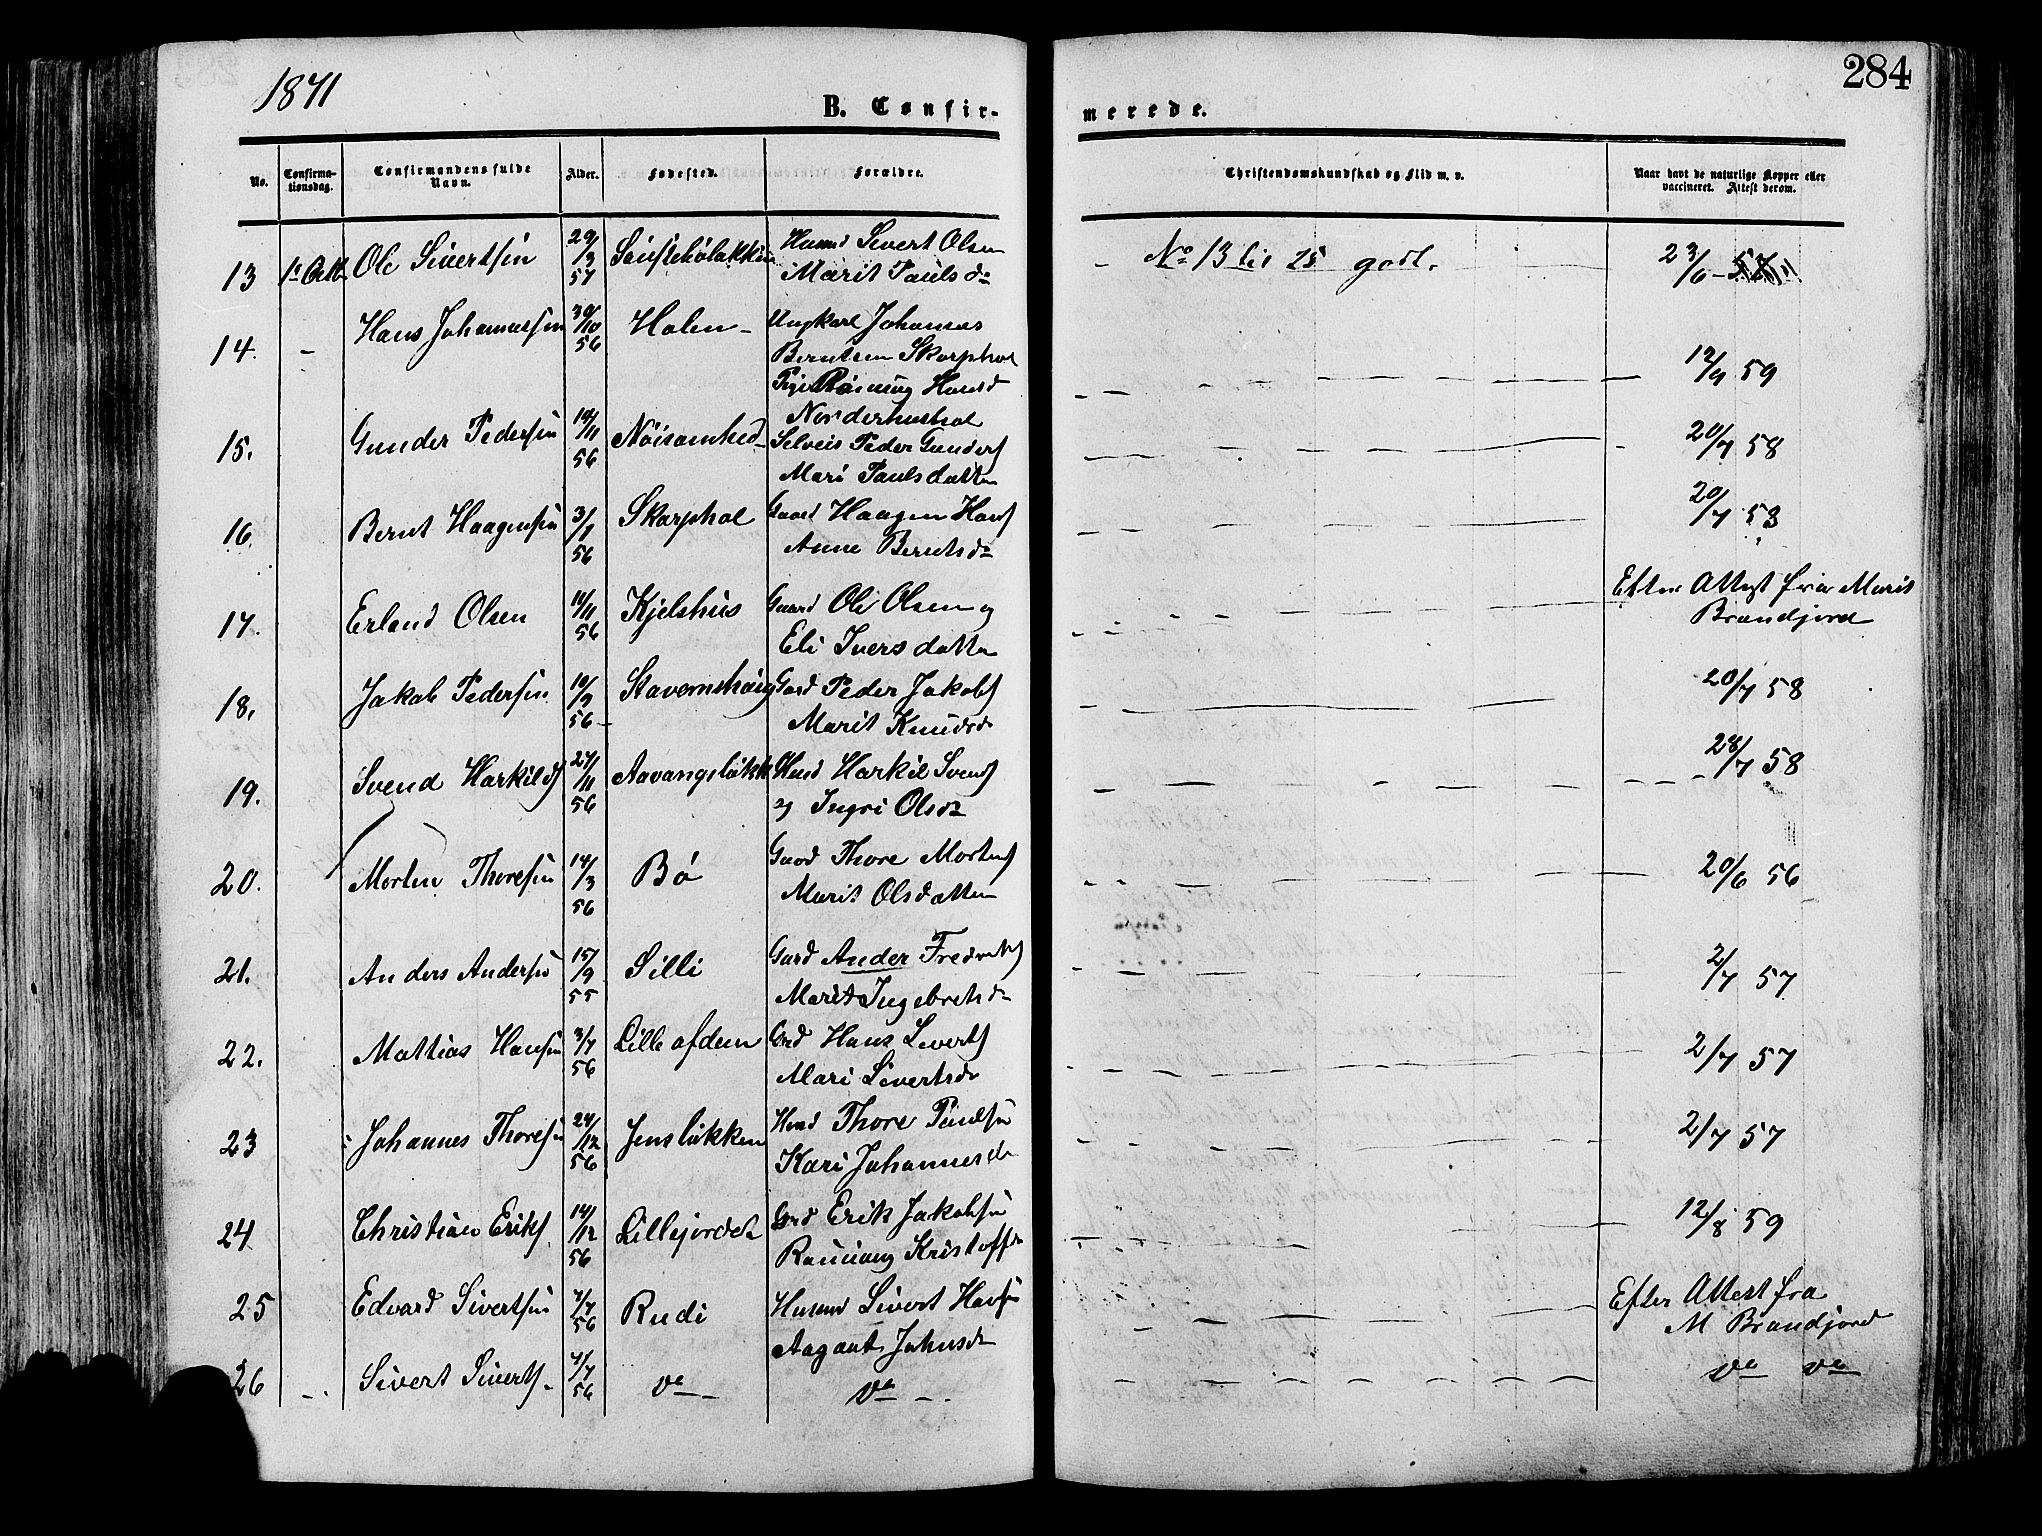 1871
284
B. Confir-
merede.
No.
Confirma-
tionsdag.
Confirmandens fulde
Navn.
Alder.
Fødested.
Forældre.
Christendomskundskab og Flid m. v.
Naar havt de naturlige Kopper eller
vaccineret. Attest derom.
13 Ole Sivertsen 29/3 57 Husmd Sivert Olsen
Marit Paulsdr
No 13 til 25 godt. 23/6
14. Hans Johannessen 30/10 56 Holen Ungkarl Johannes
Berntsen Skarphol
Pige Hansd
12/9 59
15. Gunder Pedersen 14/11 56 Nöisomhed Selveier Peder Gunders
Mari Paulsdatter
20/7 58
16. Bernt Haagensen 3/7 56 Skarphol Gaard Haagen Hans
Anne Berntsdr
20/7 58
17. Erland Olsen 11/11 56 Kjelshus Gaard Ole Olsen og
Eli Iversdatter
Efter Attest fra Marit
Brandjord
18. Jakob Pedersen 10/9 56 Stavernshaug Gaard Peder Jakobs
Marit Knudsd
20/7 58
19. Svend Harkilds 27/11 56 Aavangsløkk Husmd Harkil Svends
og Ingri Olsdr
28/7 58
20. Morten Thoresen 14/3 56 Bö Gaard Thore Mortens
Marit Olsdatter
20/6 56
21. Anders Andersen 15/9 55 Silli Gard Ander Fredriks
Marit Ingebretsd
2/7 57
22. Mattias Hansen 3/7 56 Lille afdem Grd Hans Siverts
Mari Sivertsdr
2/7 57
23 Johannes Thoresen 24/12 56 Jensløkken Husmd Thore Paulsen
Kari Johannesdr
2/7 57
24 Christian Eriks. 14/12 56 Lillejordet Grd Erik Jakobsen
Kristoffdr
12/8 59
25 Edvard Sivertsen 7/7 56 Rudi Husmd Sivert Hansen
Aagaat Johnsdr
Efter Attest fra
M Brandjord
26 Sivert Siverts. 7/7 56 do do
do do